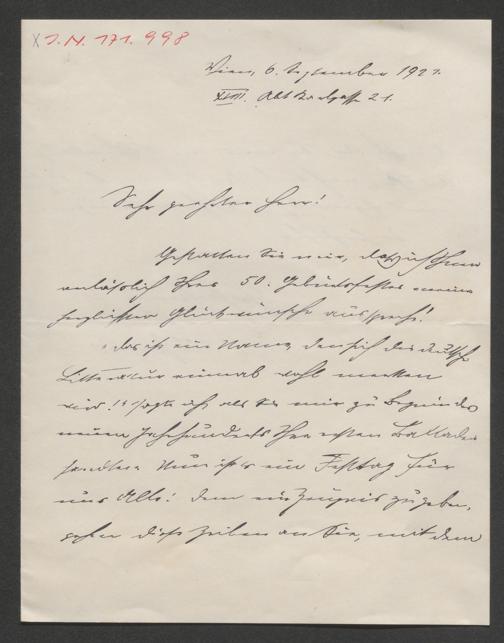 J. N. 171.998
Wien, 6. September 1921.
XVIII. Abt Karlgasse 21.
Sehr geehrter Herr!
Gestatten Sie mir, daß ich Ihnen
anläßlich Ihres 50. Geburtsfestes meine
herzlichsten Glückwünsche ausspreche!
„Das ist ein Name, den sich die deutsche
Litteratur einmal wohl merken
wird!" sagte ich, als Sie mir zu Beginn des
neuen Jahrhunderts Ihre ersten Balladen
sandten. Nun ist es ein Festtag für
uns Alle! Dem ein Zeugnis zu geben,
gehen diese Zeilen an Sie, mit dem